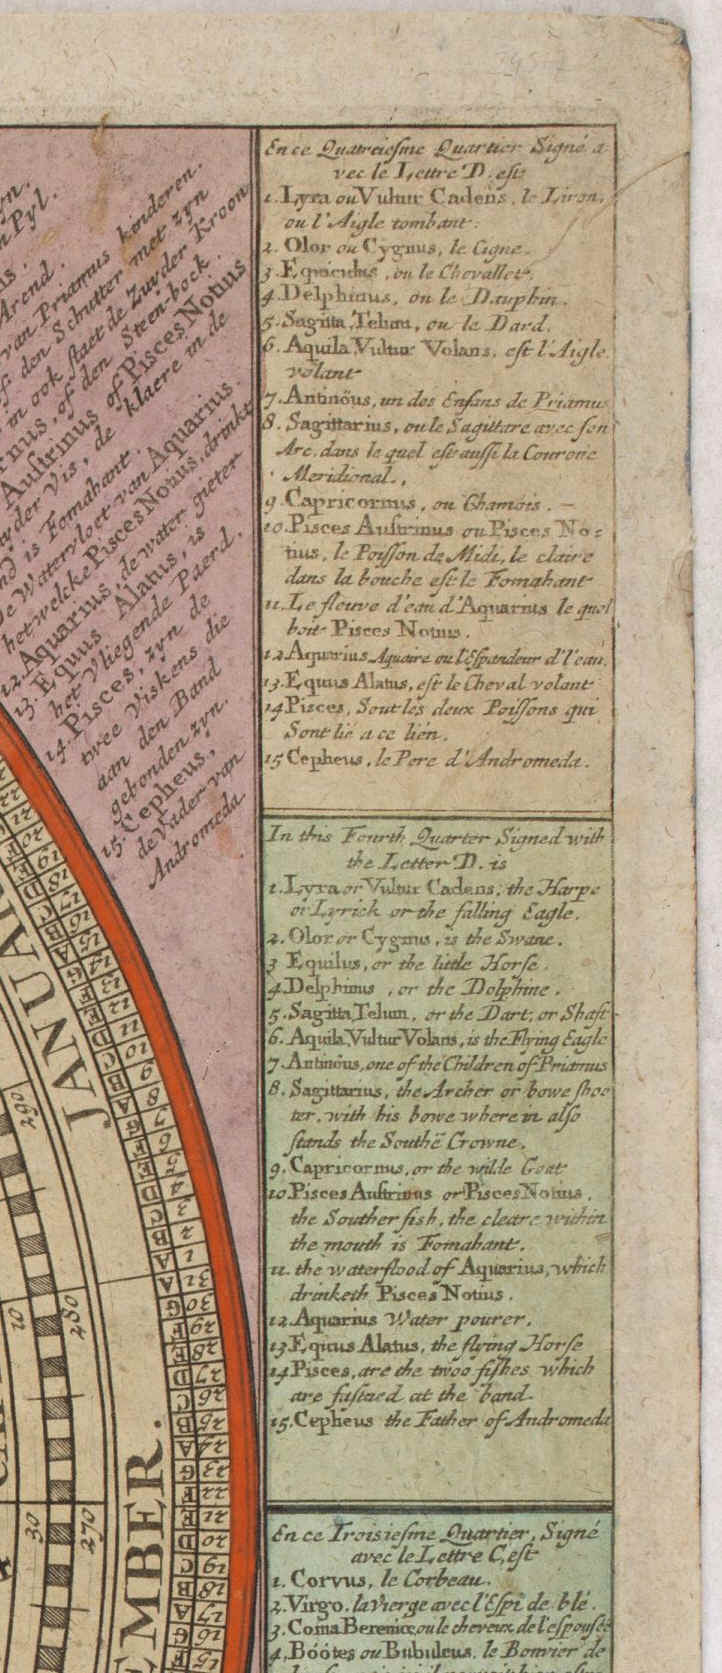 yn.
n Pyl.
Arend.
van Priamus kinderen.
den Schutter met zyn
ook staet de Zuyder Kroon
of den Steen-bock.
Austrinus of Pisces Notius
Vis, de klaere in de
is Fomahant.
De Watervloet van Aquarius.
het welcke Pisces Notius, drinkt
12. Aquarius, de water gieter
13. Equus Alatus, is
het Vliegende Paerd.
14. Pisces, zyn de
twee Viskens die
aan den Band
gebonden zyn.
15. Cepheus,
de Vader van
Andromeda
En ce Quatreiesme Quartier Signé a
vec le Lettre D. est
1. Lyra ou Vultur Cadens, le Liron,
ou l'Aigle tombant.
2. Olor ou Cygnus, le Cigne.
3. Equiculus, ou le Chevallet.
4. Delphinus, ou le Dauphin.
5. Sagitta, Telum, ou le Dard.
6. Aquila, Vultur Volans, est l'Aigle
volant
7. Antinöus, un des Enfans de Priamus
8. Sagittarius, ou le Sagittare avec son
Arc, dans le quel est aussi la Couronne
Meridional.
9. Capricornus, ou Chamois.
10. Pisces Austrinus ou Pisces No=
tius, le Poisson de Midi, le claire
dans la bouche est le Fomahant
11. Le fleuve d'eau d'Aquarius le quel
boit Pisces Notius.
12. Aquarius Aquaire ou l'Espandeur d'l'eau.
13. Equus Alatus, est le Cheval volant
14 Pisces, Sont les deux Poissons qui
Sont lié a ce lien.
15 Cepheus, le Pere d'Andromeda.
In this Fourth Quarter Signed with
the Letter D. is
1. Lyra or Vultur Cadens, the Harpe
or Lyrick or the falling Eagle.
2. Olor or Cygnus, is the Swane.
3 Equilus, or the little Horse.
4. Delphinus, or the Dolphine.
5. Sagitta, Telum, or the Dart, or Shaft
6. Aquila, Vultur Volans, is the Flying Eagle
7. Antinöus, one of the Children of Priamus
8. Sagittarius, the Archer or bowe shoe
ter, with his bowe where in also
stands the Southë Crowne.
9. Capricornus, or the wilde Goat
10. Pisces Austrinus or Pisces Notius,
the Souther fish, the cleare within
the mouth is Fomahant.
11. the waterflood of Aquarius, which
drinketh Pisces Notius.
12. Aquarius Water pourer.
13. Equus Alatus, the flying Horse
14 Pisces, are the twoo fishes which
are fastned at the band.
15. Cepheus the Father of Andromeda
En ce Troisiesme Quartier, Signé
avec le Lettre C, est
1. Corvus, le Corbeau.
2. Virgo. la Vierge avec l'Espi de blé.
3. Coma Berenice, ou le cheveux de l'espousée
4. Böötes ou Bubulcus, le Bouvier de
JANUAR
EMBER.
290
280
270
10
30